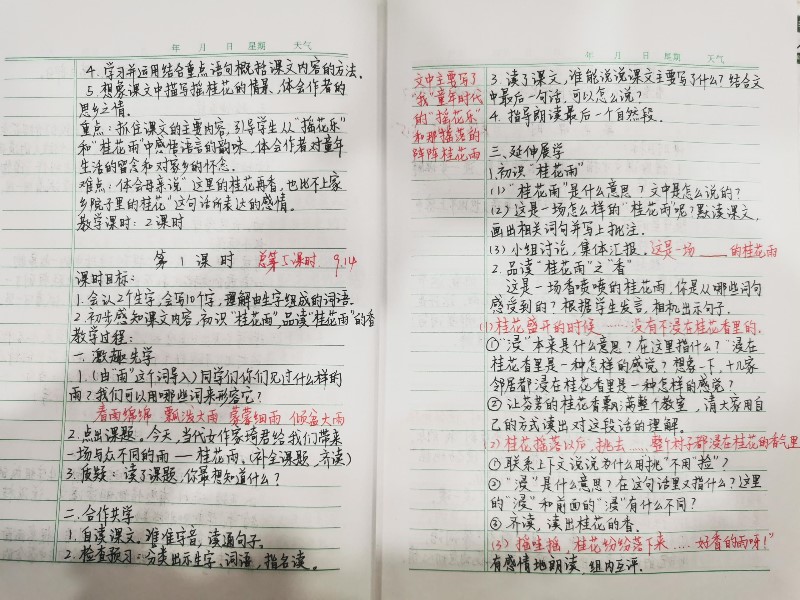 年 月 日 星期 天气
4. 学习并运用结合重点语句概括课文内容的方法。
5. 想象课文中描写摇桂花的情景、体会作者的
思乡之情。
重点：抓住课文的主要内容，引导学生从“摇花乐”
和“桂花雨”中感悟语言的韵味，体会作者对童年
生活的留念和对家乡的怀念。
难点：体会母亲说“这里的桂花再香，也比不上家
乡院子里的桂花”这句话所表达的感情。
教学课时：2课时
第 1 课时 总第5课时 9.14
课时目标：
1. 会认2个生字，会写10个字，理解由生字组成的词语。
2. 初步感知课文内容，初识“桂花雨”，品读“桂花雨”的香
教学过程：
一、激趣先学
1. (由“雨”这个词导入) 同学们你们见过什么样的
雨？我们可以用哪些词来形容它？
春雨绵绵 瓢泼大雨 蒙蒙细雨 倾盆大雨
2. 点出课题。今天，当代女作家琦君给我们带来
一场与众不同的雨——桂花雨。(补全课题，齐读)
3. 质疑：读了课题，你最想知道什么？
二、合作共学
1. 自读课文，读准字音，读通句子。
2. 检查预习：分类出示生字、词语，指名读。
年 月 日 星期 天气
文中主要写了
“我”童年时代
的“摇花乐”
和那摇落的
阵阵桂花雨
3. 读了课文，谁能说说课文主要写了什么？结合文
中最后一句话，可以怎么说？
4. 指导朗读最后一个自然段。
三、延伸展学
1. 初识“桂花雨”
(1) “桂花雨”是什么意思？文中是怎么说的？
(2) 这是一场怎么样的“桂花雨”呢？默读课文，
画出相关词句并写上批注。
(3) 小组讨论，集体汇报。这是一场____的桂花雨
2. 品读“桂花雨”之“香”
这是一场香喷喷的桂花雨，你是从哪些词句
感受到的？根据学生发言，相机出示句子。
(1) 桂花盛开的时候……没有不浸在桂花香里的。
①“浸”本来是什么意思？在这里指什么？“浸在
桂花香里是一种怎样的感觉？想象一下，十几家
邻居都浸在桂花香里是一种怎样的感觉？
② 让芬芳的桂花香飘满整个教室，请大家用自
己的方式读出对这段话的理解。
(2) 桂花摇落以后，挑去……整个村子都浸在桂花的香气里
① 联系上下文说说为什么用“挑”不用“捡”？
②“浸”是什么意思？在这句话里又指什么？这里
的“浸”和前面的“浸”有什么不同？
③ 齐读，读出桂花的香。
(3) 摇哇摇，桂花纷纷落下来……好香的雨呀！”
有感情地朗读，组内互评。